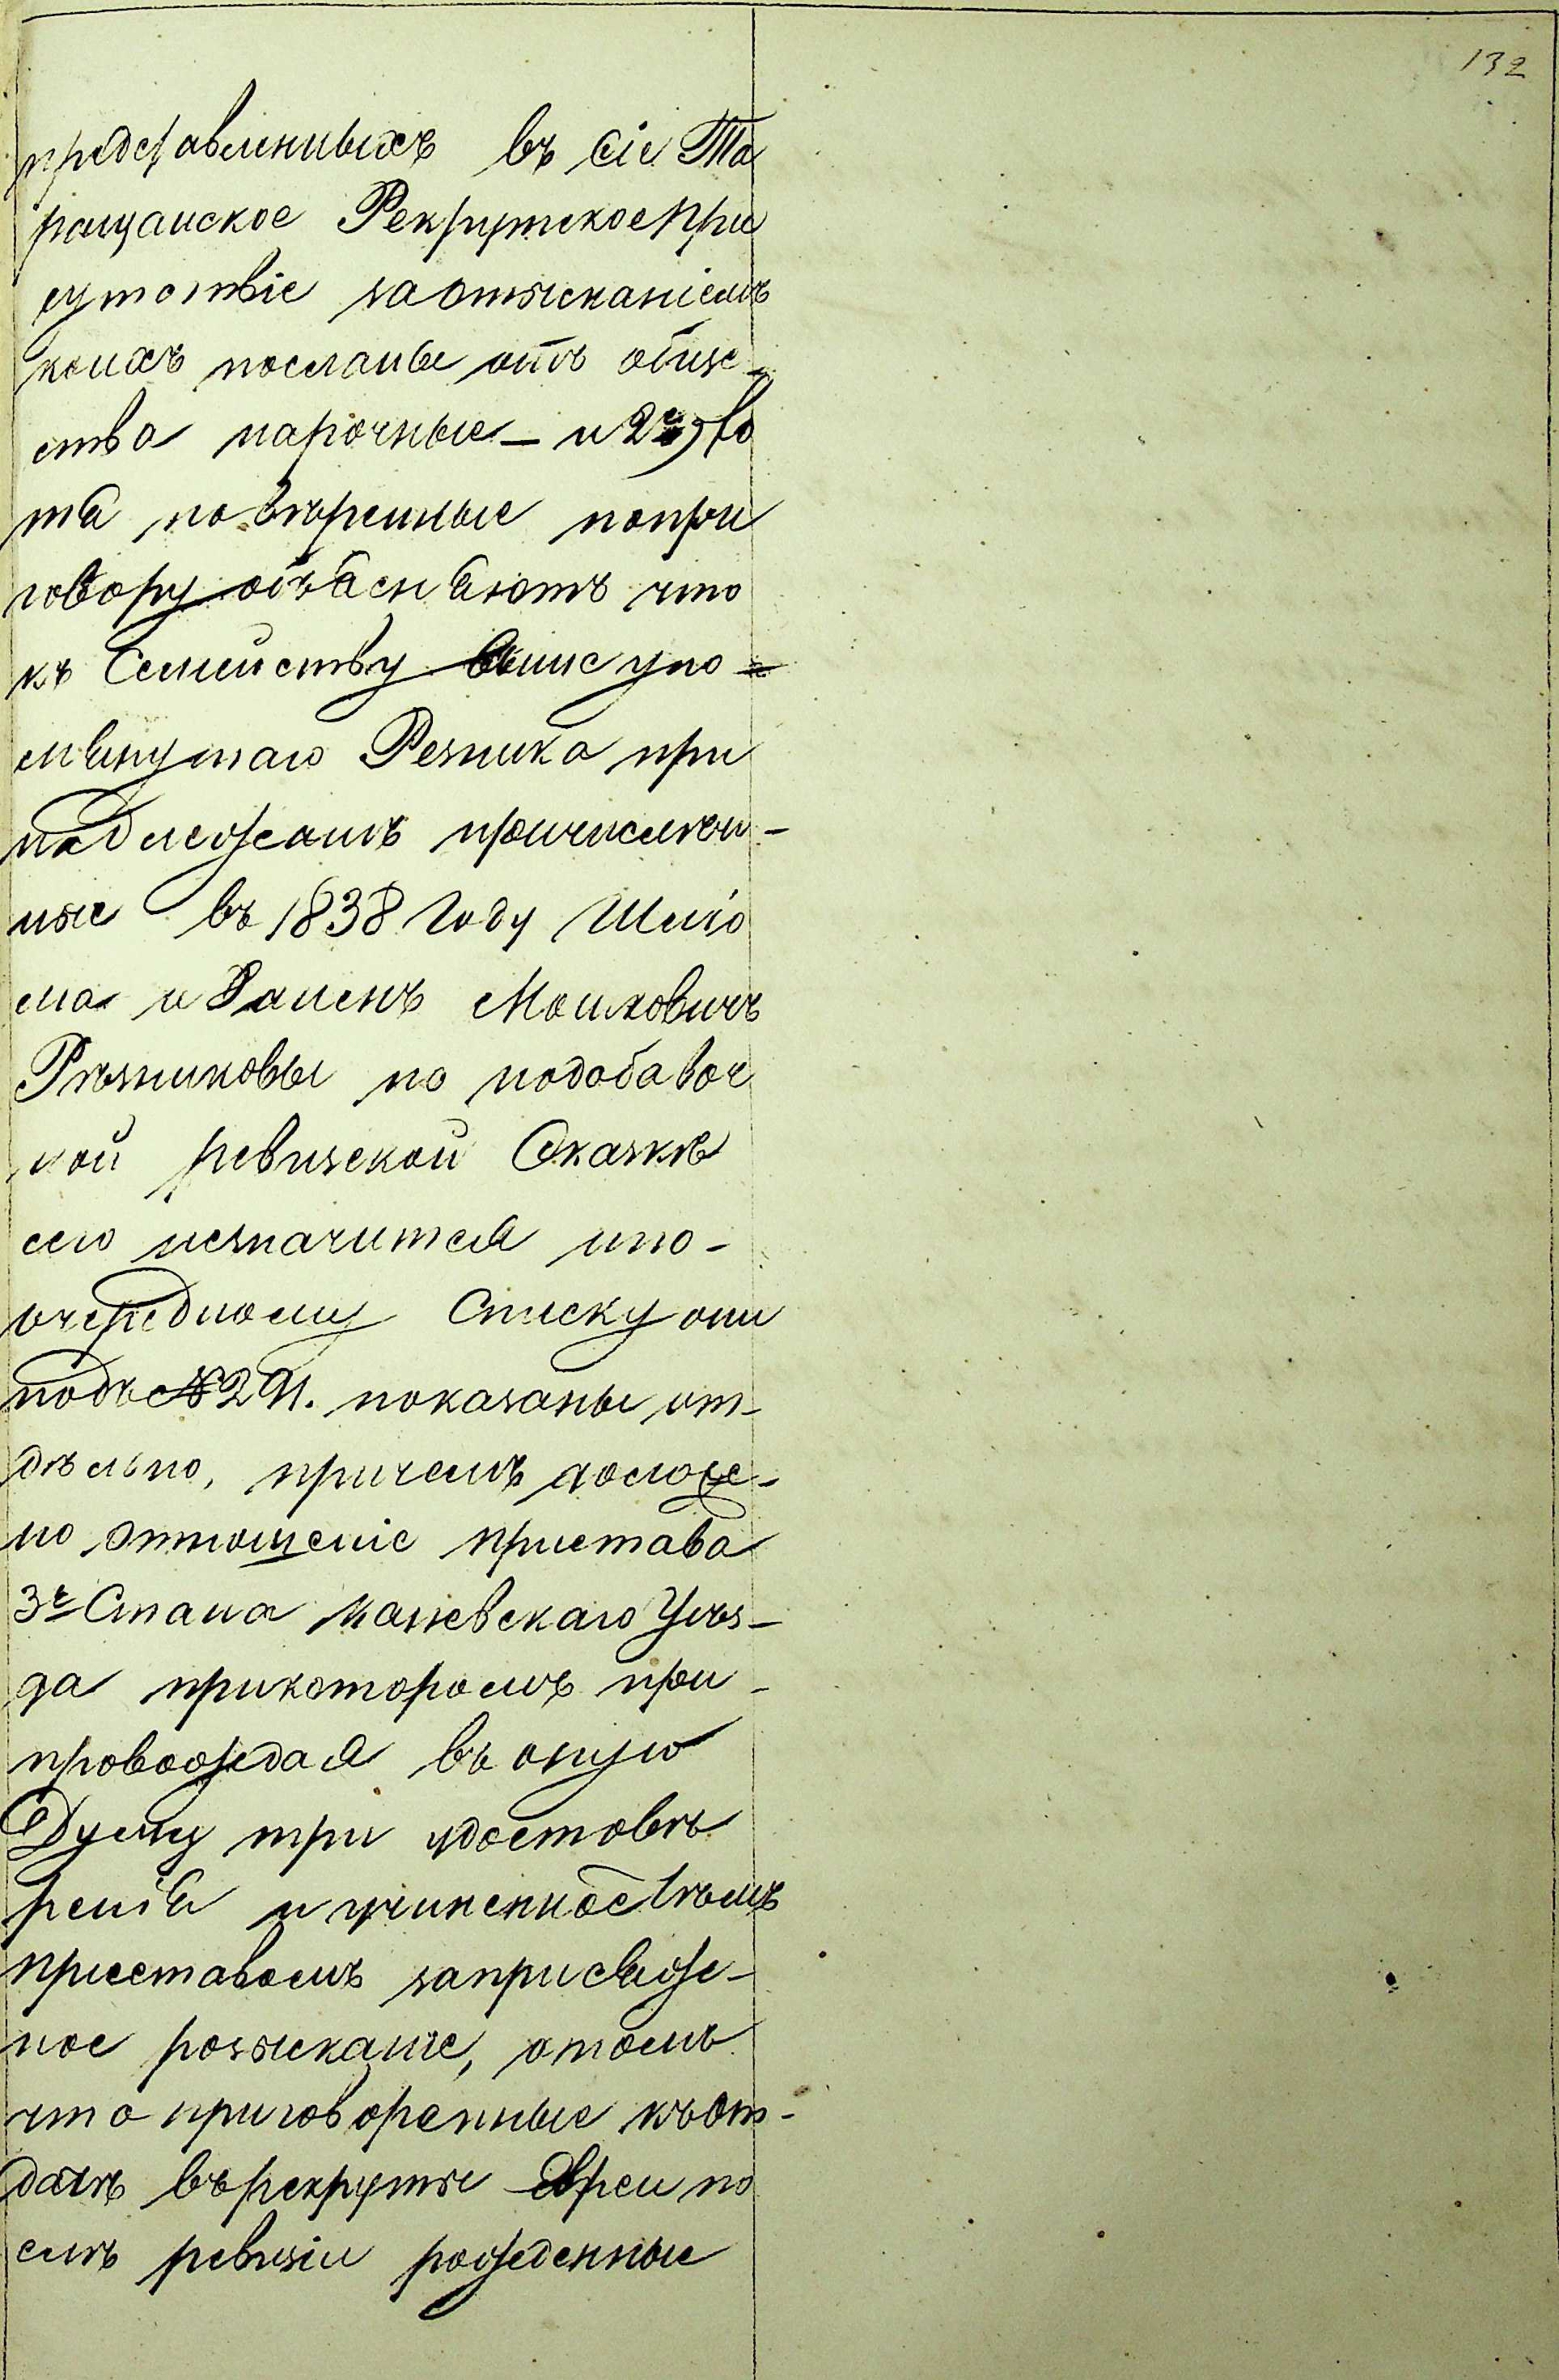 132
представленныхъ въ сіе Та
ращанское Рекрутское При
сутствіе за отысканіемъ
коихъ посланы отъ обще-
ства нарочные — и 2е, хо
тя поверенные по при
говору объясняютъ что
къ Семейству выше упо=
мянутаго Резника при
надлежатъ причислен-
ные въ 1838 году Шлiо
ма и Хаимъ Мошковичъ
Резниковы но по добавоч
ной ревизской Сказкѣ
сего не значится и по-
очередному Списку они
подъ № 291. показаны от-
дѣльно, при чемъ доложе-
но Отношеніе пристава
3е Стана Каневскаго Уѣз-
да при которомъ пре-
провождая въ оную
Думу три удостовѣ
ренія и учиненное тѣмъ
приставомъ за присяже-
ное розыскание, о томъ
что приговоренные къ от-
дачѣ въ рекруты Евреи по
слѣ ревизіи рожденные